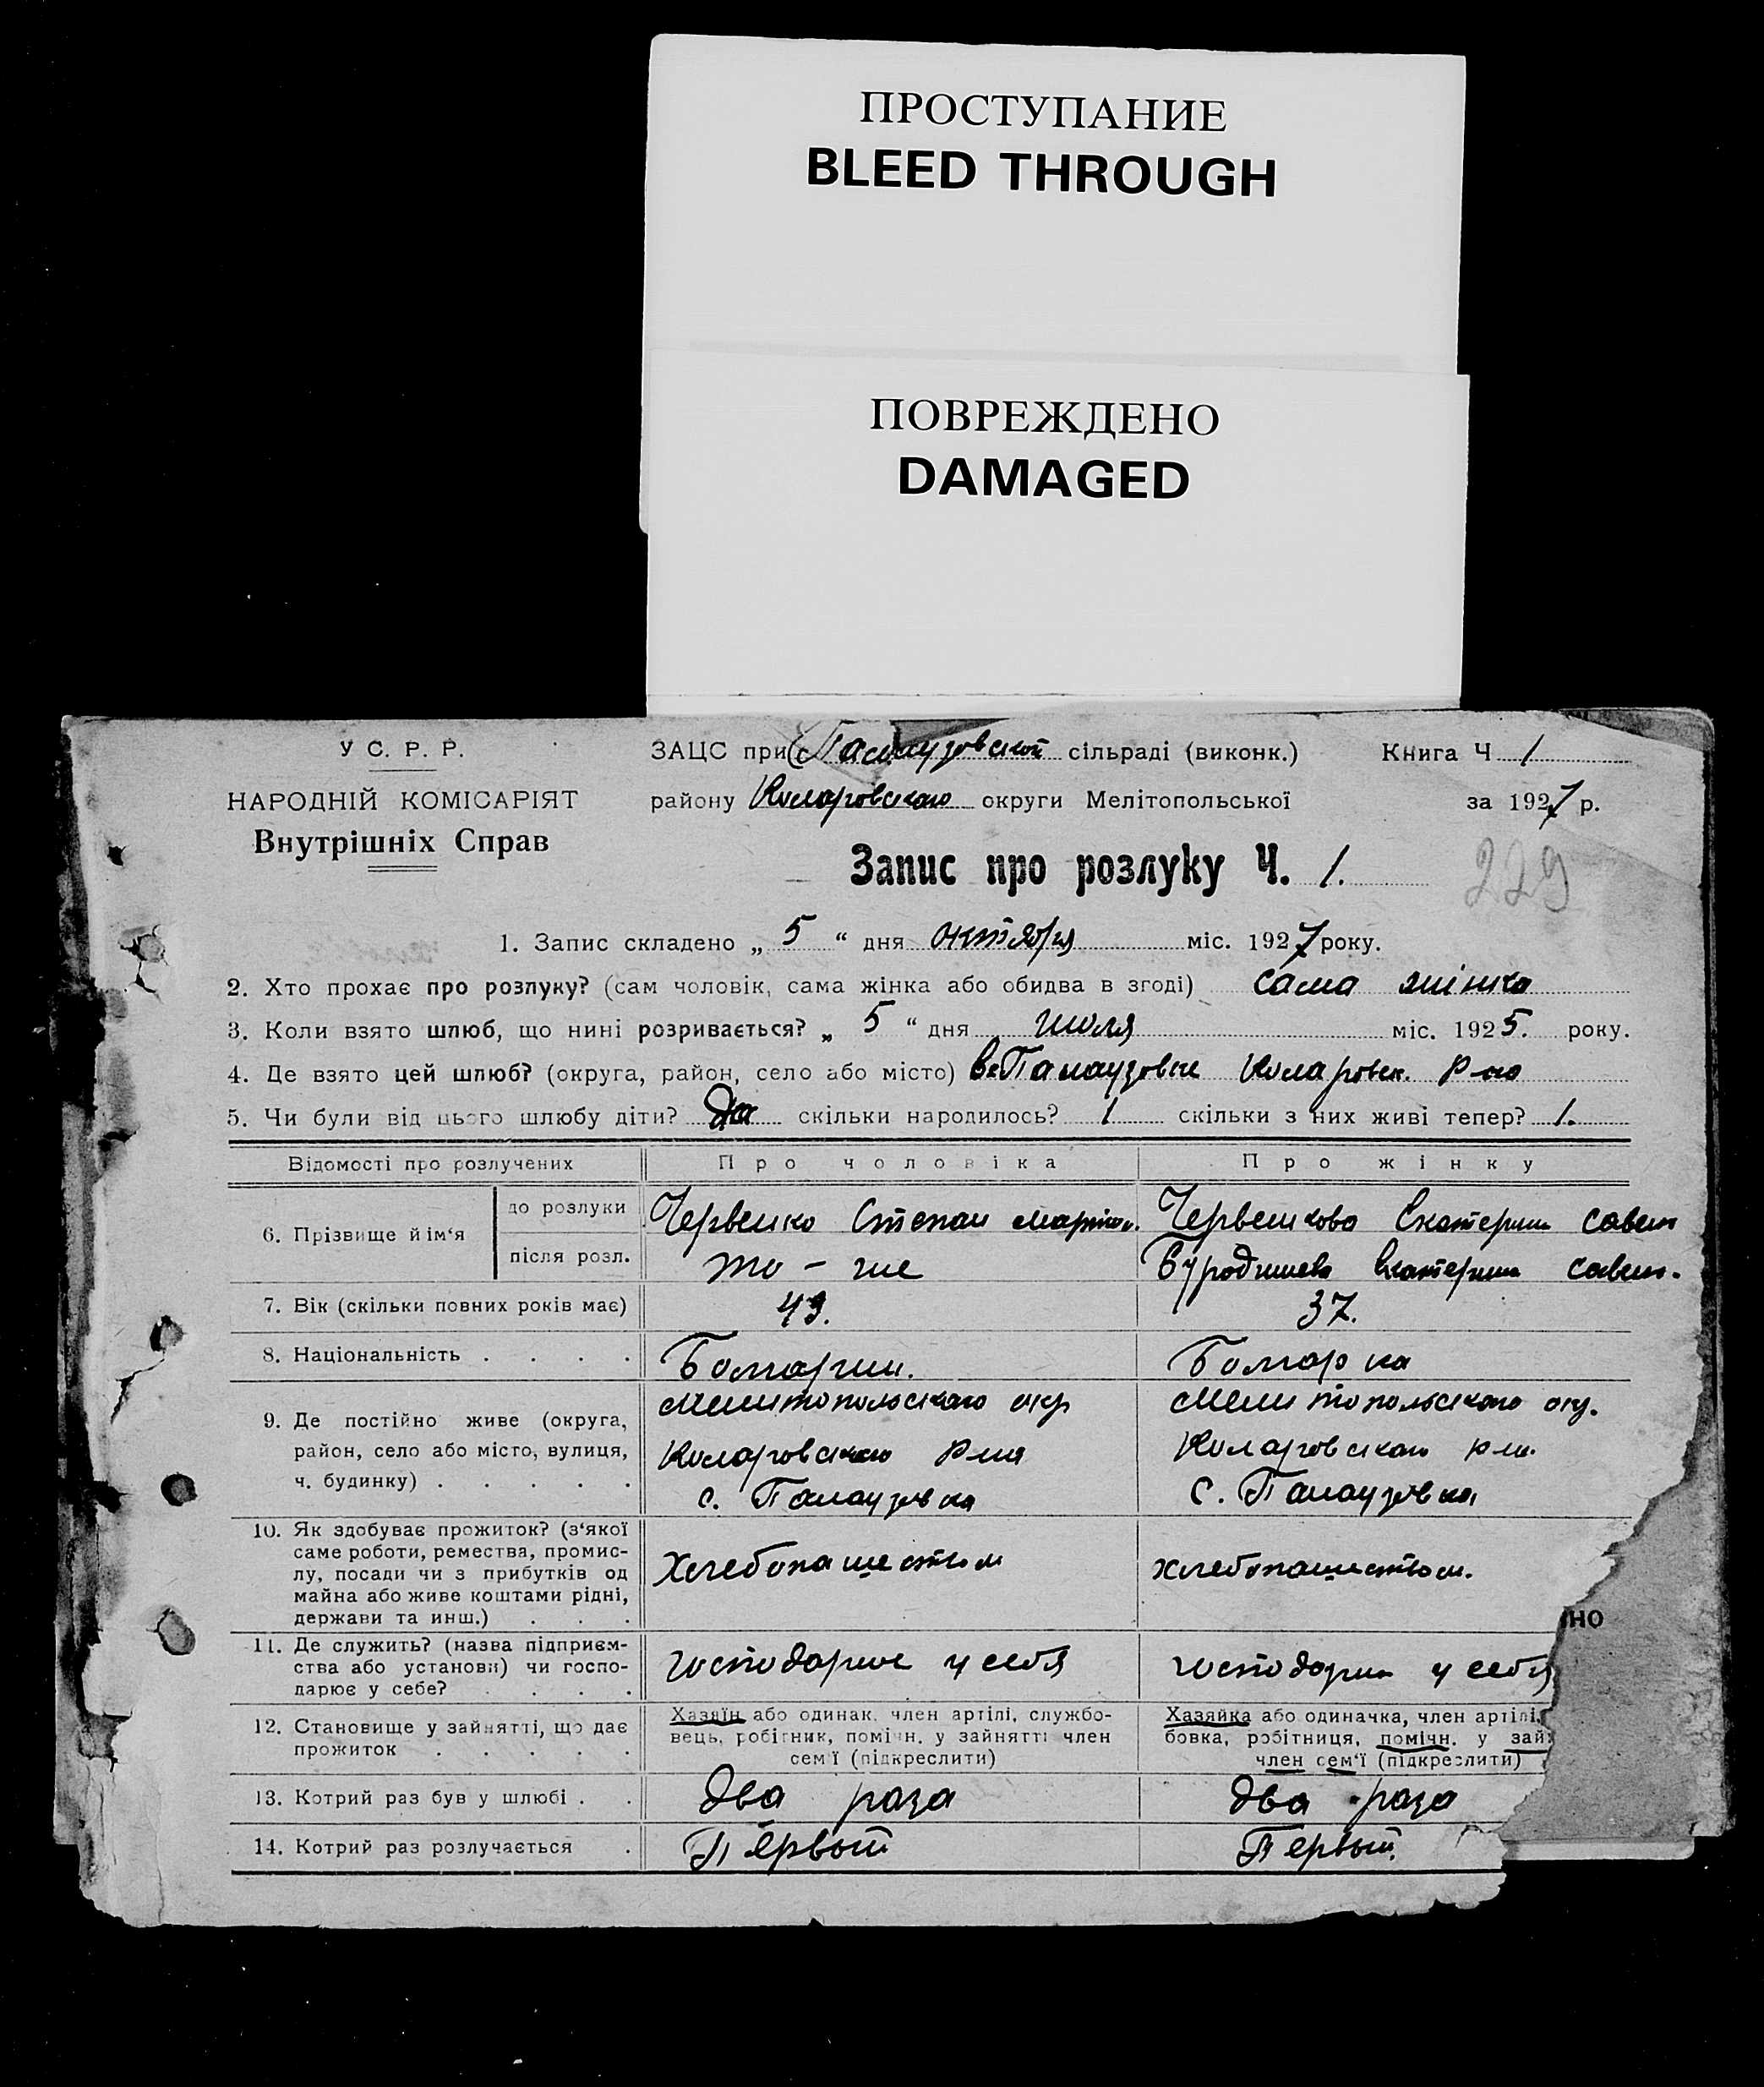 ПРОСТУПАНИЕ
BLEED THROUGH
ПОВРЕЖДЕНО
DAMAGED
У С. Р. Р.
НАРОДНІЙ КОМІСАРІЯТ
Внутрішніх Справ
ЗАЦС при сільраді (виконк.) Книга Ч 1
району Коларовского округи Мелітопольської за 1927 р.
Запис про розлуку Ч. 1.
229
1. Запис складено „ 5 “ дня октября міс. 1927 року.
2. Хто прохає про розлуку? (сам чоловік, сама жінка або обидва в згоді) сама жінка
3. Коли взято шлюб, що нині розривається? „ 5 “ дня июля міс. 1925. року.
4. Де взято цей шлюб? (округа, район, село або місто) в с Палаузовке Коларовск. р-на
5. Чи були від цього шлюбу діти? да скільки народилось? 1 скільки з них живі тепер? 1.
Відомості про розлучених Про чоловіка Про жінку
6. Прізвище й ім‘я до розлуки Червенко Степан Червенкова Екатерина Савел
після розл. то - же Екатерина Савел.
7. Вік (скільки повних років має) 49. 37.
8. Національність . . . . Болгарин. Болгарка
9. Де постійно живе (округа, район, село або місто, вулиця, ч. будинку) . . . . .
Мелитопольского окр
Коларовского р-на
с. Палаузовка
Мелитопольского ок.
Коларовского р-н.
с. Палаузовка
10. Як здобуває прожиток? (з‘якої саме роботи, ремества, промислу, посади чи з прибутків од майна або живе коштами рідні, держави та инш.) . . .
хлебопашеством
хлебопашеством.
но
11. Де служить? (назва підприємства або установи) чи господарює у себе? . . . .
господарює у себя
господарит у себя
12. Становище у зайнятті, що дає прожиток . . . . .
Хазяїн або одинак, член артілі, службовець, робітник, помічн. у зайнятті член сем‘ї (підкреслити)
Хазяйка або одиначка, член артілі,
бовка, робітниця, помічн. у зай
член сем‘ї (підкреслити)
13. Котрий раз був у шлюбі . . два раза два раза
14. Котрий раз розлучається . Первый Первый.